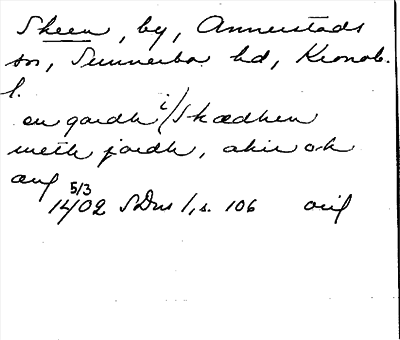 Skeen, by, Annerstads
sn, Sunnerbo hd, Kronob.
l.
en gardh i/Skædhen
meth jordh, aker ok
æng
5/3
1402 SDns 1, s. 106 orig